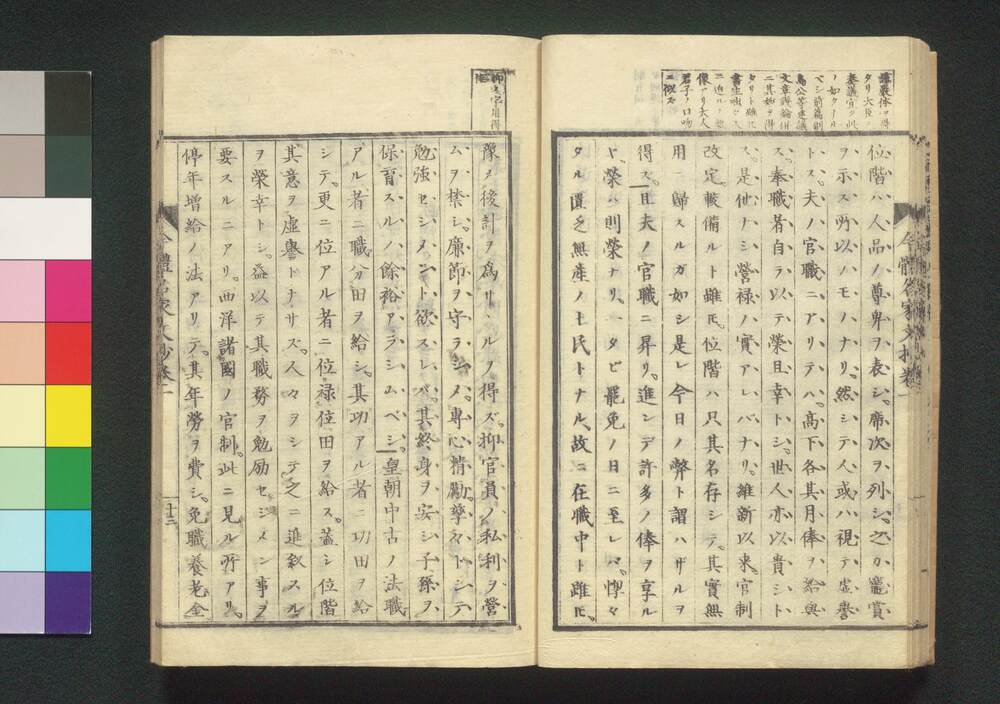 謹嚴体ヲ得
タリ大臣ノ
奏議宜ク此
ノ如クナル
ベシ
位階ハ人品ノ尊卑ヲ表シ。席次ヲ列シ。之カ寵賞
ヲ示ス所以ハモノナリ。然シテ人或ハ視テ虚譽
トス。夫ノ官職ニアリテハ。高下各其月俸ヲ給與
ス。奉職者自ラ以テ榮且幸トシ。世人亦以貴シト
ス。是他ナシ營禄ノ實アレバナリ。維新以来。官制
改定。載備ルト雖モ。位階ハ只其名存シテ。其實無
用ニ歸スルガ如シ是レ今日ノ弊ト謂ハザルヲ
得ズ。且夫ノ官職ニ昇リ。進ンデ許多ノ俸ヲ享ル
ヤ。榮ハ則榮ナリ。一タビ罷免ノ日ニ至レバ。慳々
タル匱乏無産ノ土民トナル。故ニ在職中ト雖モ。
抑ノ字用得
豫メ後計ヲ爲サヾルヲ得ズ。抑官員ノ私利ヲ營
ムヲ禁シ。廉節ヲ守ラシメ。專心精勵孳々トシテ
勉強セシメント欲スレバ。其終身ヲ安シ子孫ヲ
保育スルノ餘裕アラシムベシ。皇朝中古ノ法職
アル者ニ職分田ヲ給シ。其功アル者ニ功田ヲ給
シテ。更ニ位アル者ニ位禄位田ヲ給ス。蓋シ位階
其意ヲ虚譽トナサズ。人々ヲシテ之ニ進敘スル
ヲ榮幸トシ。益以テ其職務ヲ勉励セシメン事ヲ
要スルニアリ。西洋諸國ノ官制。此ニ見ル所アリ。
停年増給ノ法アリテ。其年勞ヲ費シ。免職養老金
今體名家文抄卷一
十二